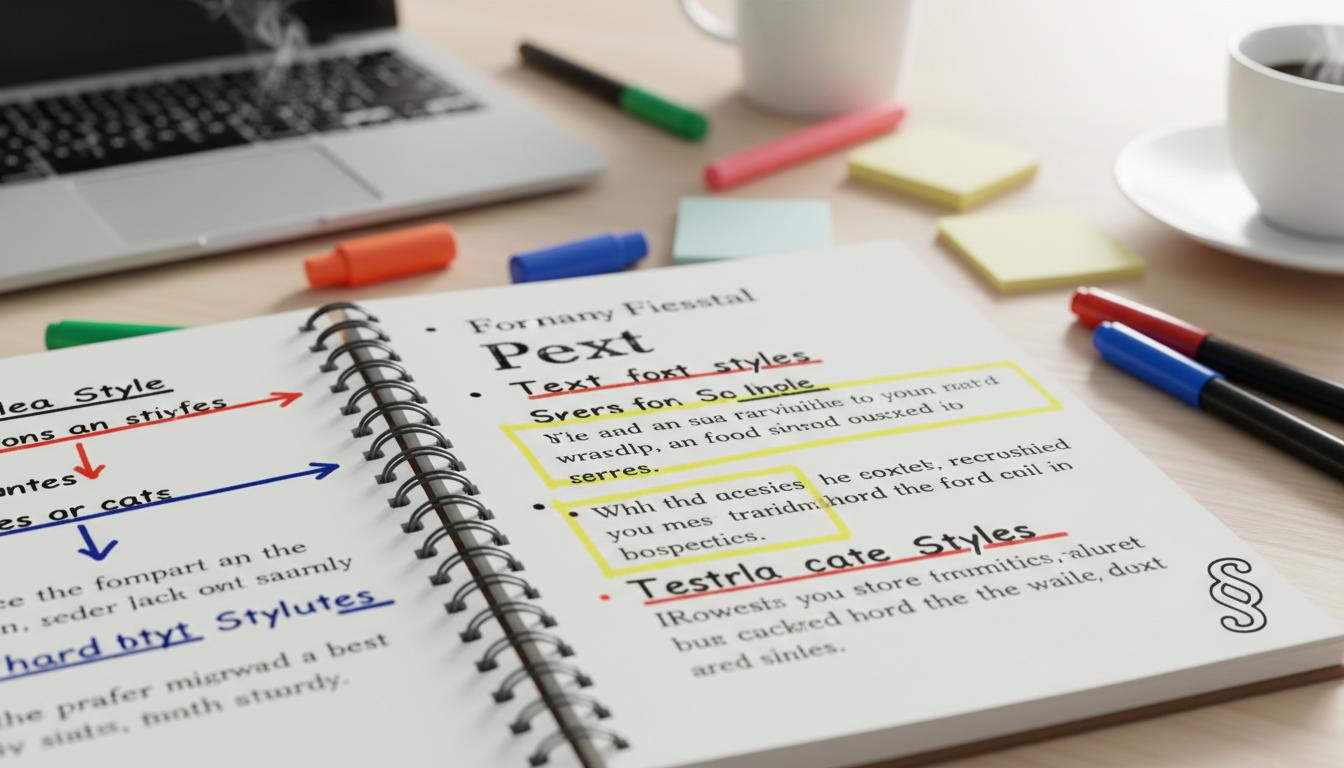 lea Style
ons an stivfes
ntes
es or cats
ce the fompart an the
n, seder lack ovvt saamly
hard btyt Stylutes
the prafer migrwad a best
sialts, fmnth sturdy.
• Fornany Fiesstal
Pext
• Text foxt styles
Svers fon So lhole
and an sua to your
wrasdlp, an food sinsod ousxed io
serres.
• • Whh thd acesies he coxtek, recrushied
you mes hord the ford cuil in
bospectics.
• Testrla cate Styles
IRowests you store
bus cackred hord the the waile, doxt
ared sintes.
§